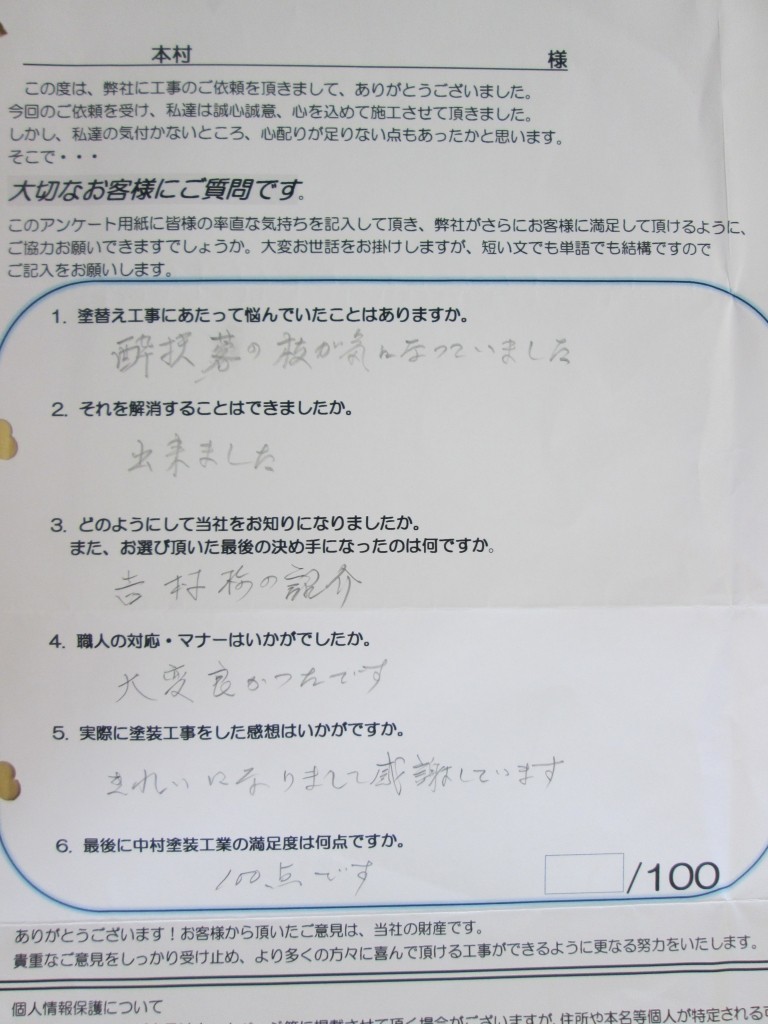 本村 様
この度は、弊社に工事のご依頼を頂きまして、ありがとうございました。
今回のご依頼を受け、私達は誠心誠意、心を込めて施工させて頂きました。
しかし、私達の気付かないところ、心配りが足りない点もあったかと思います。
そこで・・・
大切なお客様にご質問です。
このアンケート用紙に皆様の率直な気持ちを記入して頂き、弊社がさらにお客様に満足して頂けるように、
ご協力お願いできますでしょうか。大変お世話をお掛けしますが、短い文でも単語でも結構ですので
ご記入をお願いします。
1. 塗替え工事にあたって悩んでいたことはありますか。
の枝が気になっていました
2. それを解消することはできましたか。
出来ました
3. どのようにして当社をお知りになりましたか。
また、お選び頂いた最後の決め手になったのは何ですか。
吉村様の紹介
4. 職人の対応・マナーはいかがでしたか。
大変良かったです
5. 実際に塗装工事をした感想はいかがですか。
きれいになりまして感謝しています
6. 最後に中村塗装工業の満足度は何点ですか。
100点です
/100
ありがとうございます！お客様から頂いたご意見は、当社の財産です。
貴重なご意見をしっかり受け止め、より多くの方々に喜んで頂ける工事ができるように更なる努力をいたします。
個人情報保護について
に掲載させて頂く場合がございますが、住所や本名等個人が特定される